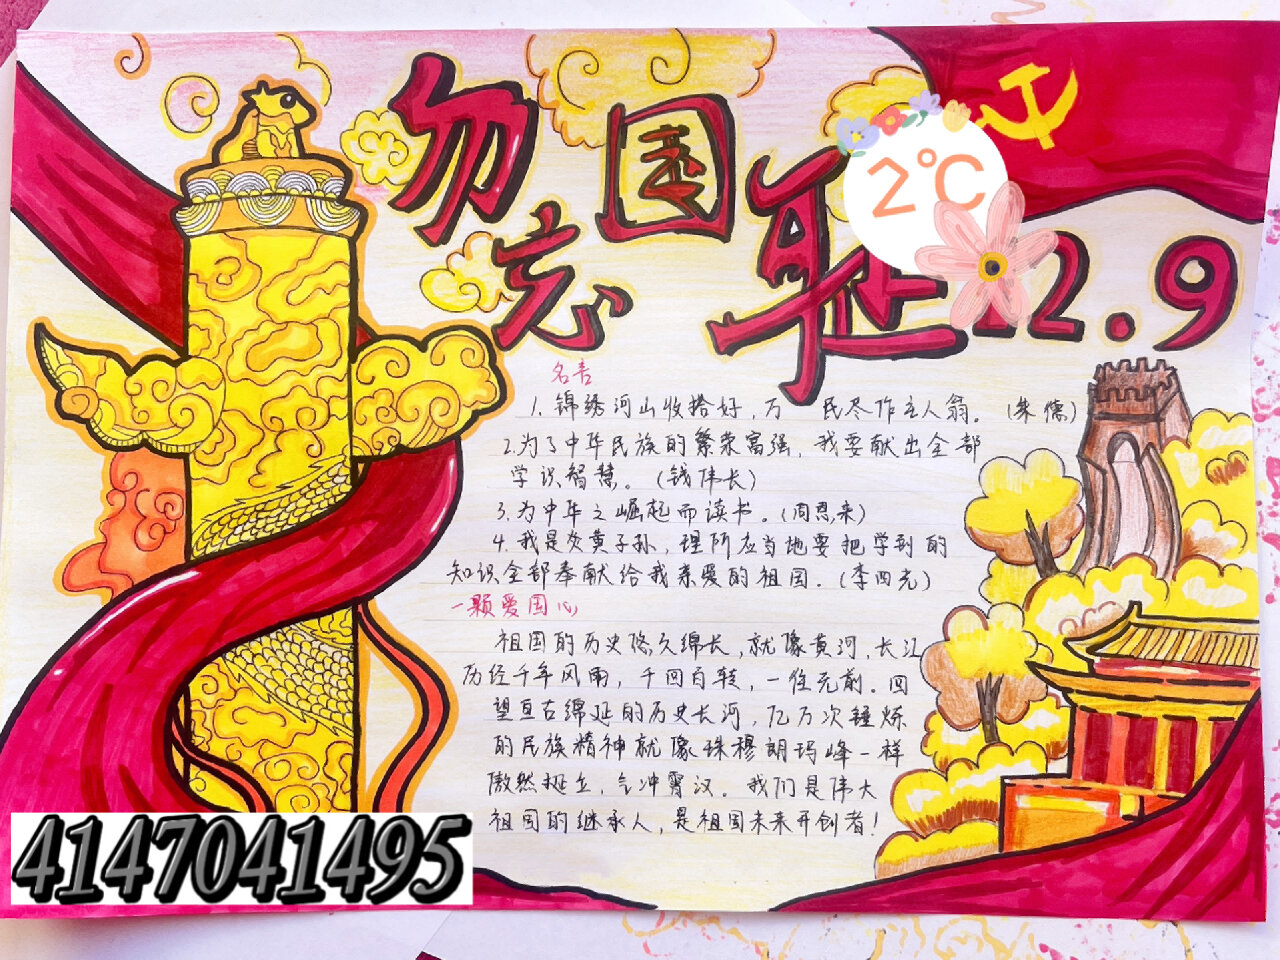 勿忘国耻 12.9
2℃
名言
1. 锦绣河山收拾好，万 民尽作主人翁。（朱德）
2.为了中华民族的繁荣富强，我要献出全部
学识智慧。（钱伟长）
3.为中华之崛起而读书。（周恩来）
4.我是炎黄子孙，理所应当地要把学到的
知识全部奉献给我亲爱的祖国。（李四光）
一颗爱国心
祖国的历史悠久绵长，就像黄河，长江
历经千年风雨，千回百转，一往无前。回
望亘古绵延的历史长河，亿万次锤炼
的民族精神就像珠穆朗玛峰一样
傲然挺立，气冲霄汉。我们是伟大
祖国的继承人，是祖国未来开创者！
4147041495